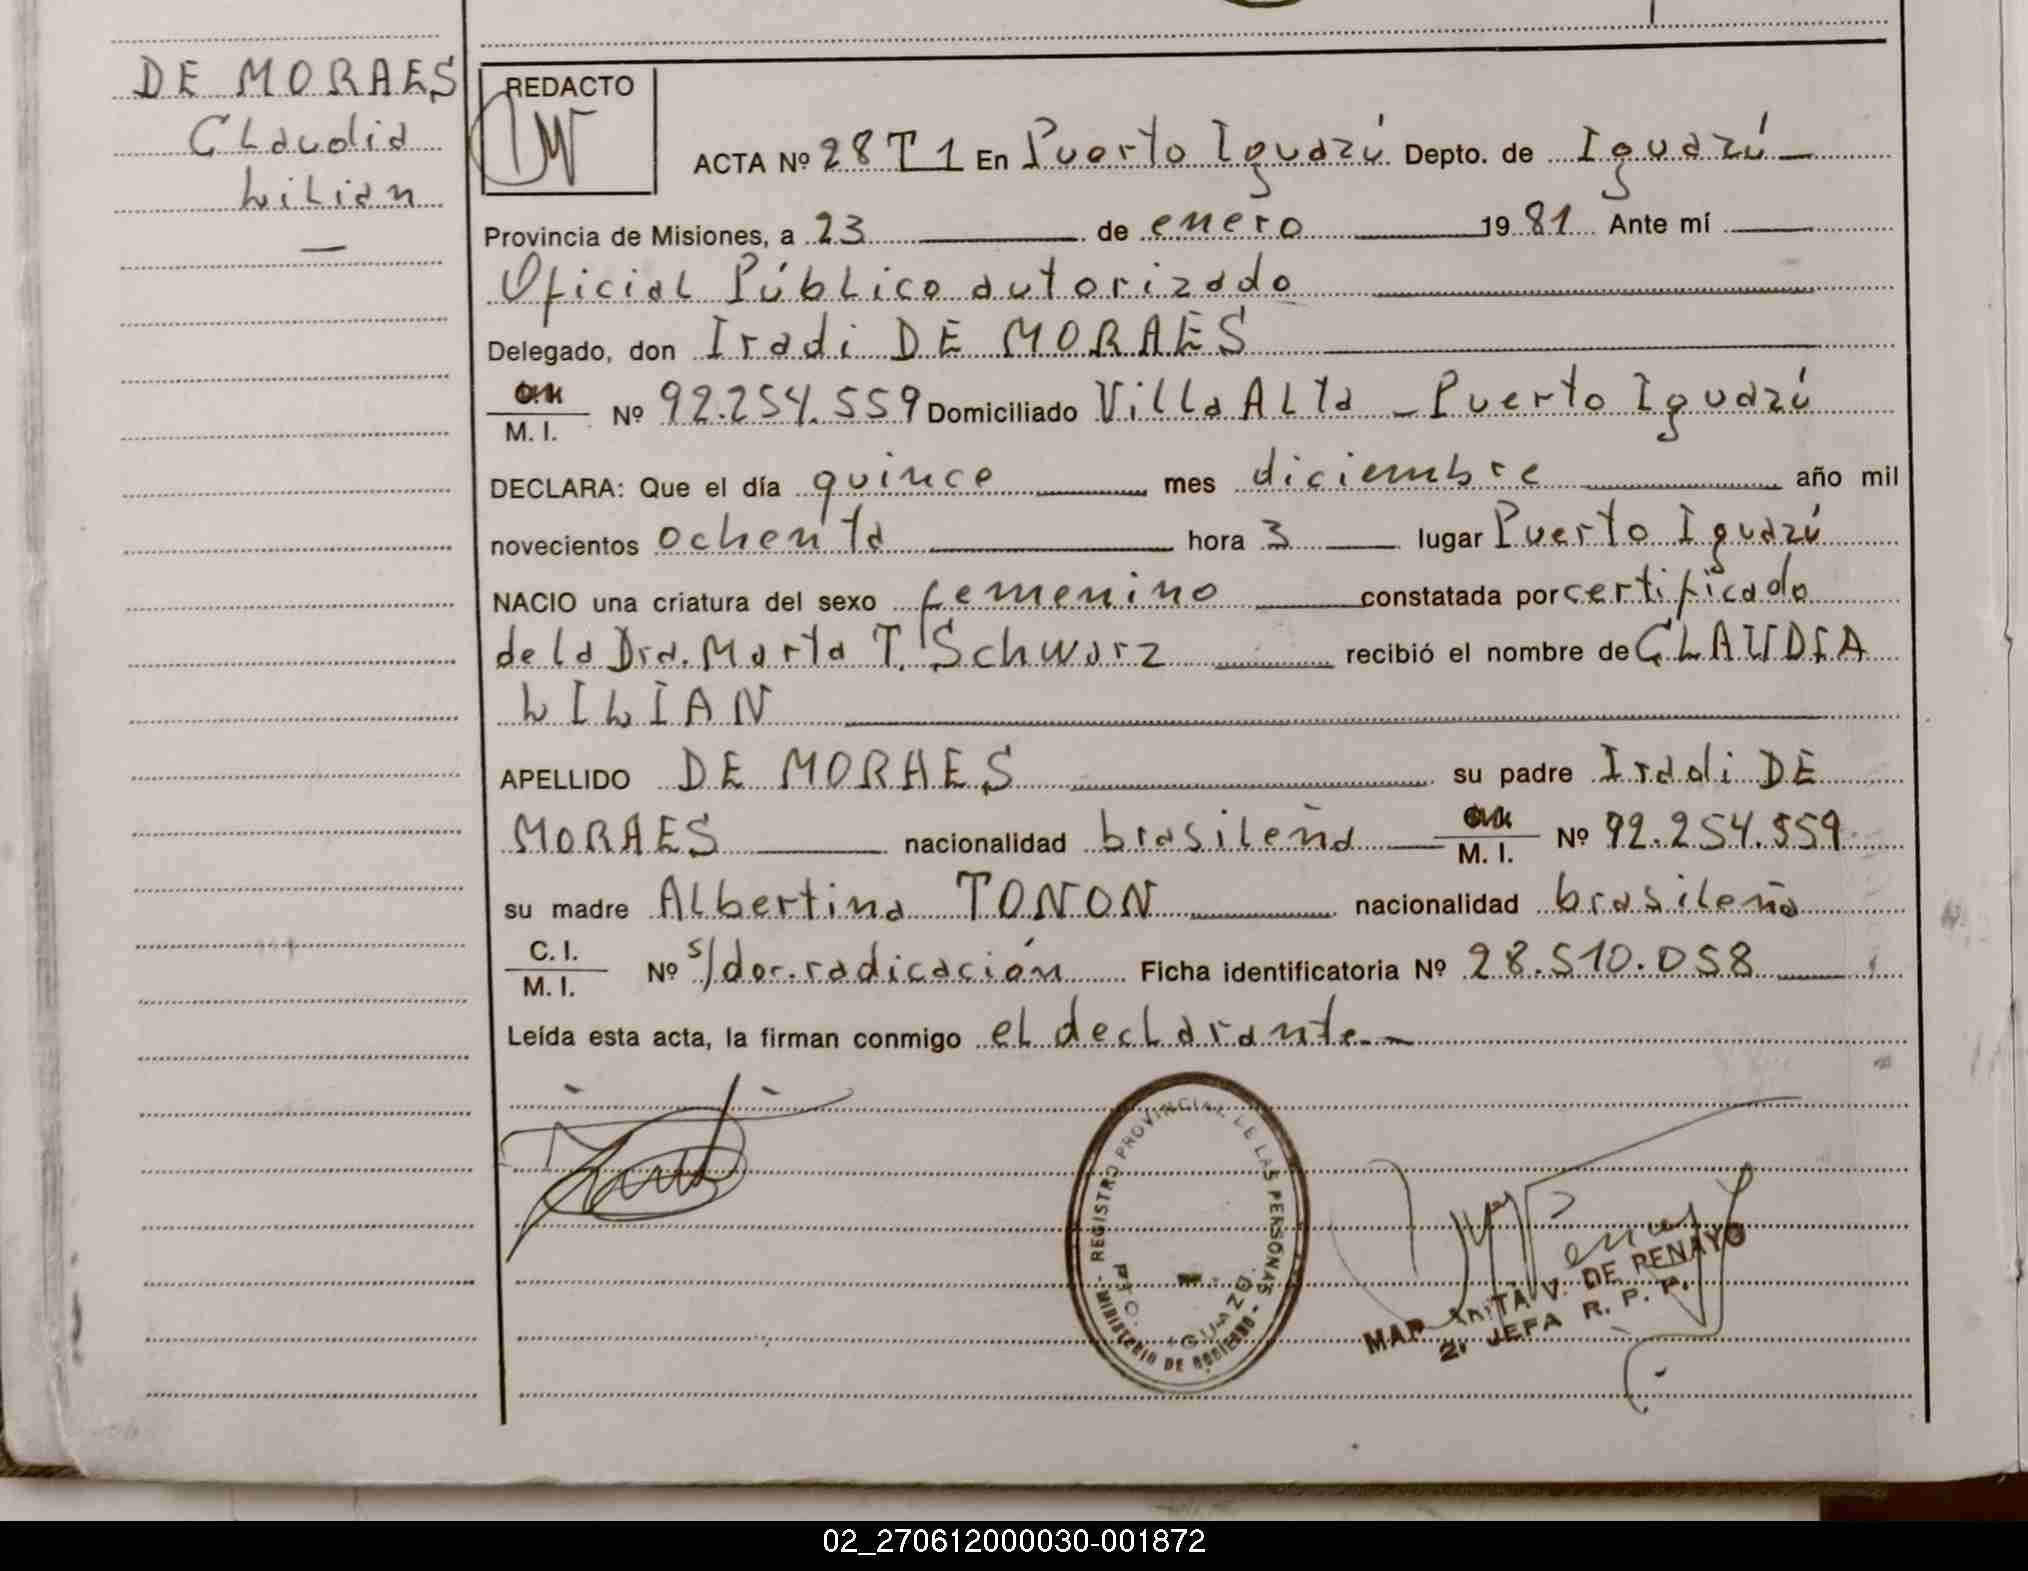 DE MORAES
Claudia
Lilian
REDACTO
ACTA Nº 28 T 1 En Puerto Iguazú Depto. de Iguazú
Provincia de Misiones, a 23 de enero 1981 Ante mí
Oficial Público autorizado
Delegado, don Iradi DE MORAES
M. I. Nº 92.254.559 Domiciliado Villa Alta - Puerto Iguazú
DECLARA: Que el día quince mes diciembre año mil
novecientos ochenta hora 3 lugar Puerto Iguazú
NACIO una criatura del sexo femenino constatada por certificado
de la Dra. Marta T. Schwarz recibió el nombre de CLAUDIA
LILIAN
APELLIDO DE MORAES su padre Iradi DE
MORAES nacionalidad brasileña M. I. Nº 92.254.559
su madre Albertina TONON nacionalidad brasileña
C. I.
M. I. Nº s/doc. radicación Ficha identificatoria Nº 28.510.058
Leída esta acta, la firman conmigo el declarante
REGISTRO PROVINCIAL DE LAS PERSONAS
MINISTERIO DE GOBIERNO
PTO. IGUAZU
V. DE PENAYO
JEFA R. P. P.
02_270612000030-001872